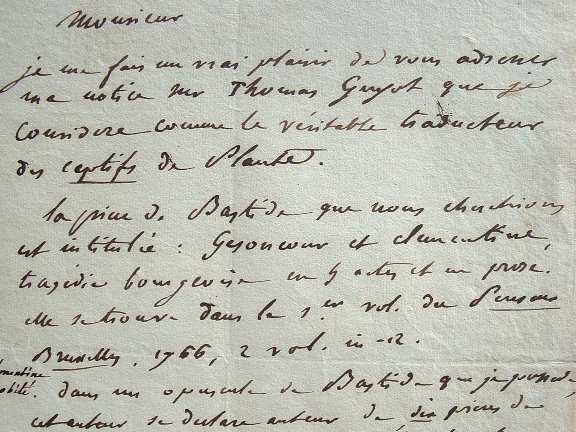 Monsieur
je me fais un vrai plaisir de vous adresser
ma notice sur Thomas Guyot que je
considere comme le véritable traducteur
des captifs de Plaute.
la piece de Bastide que nous cherchions
est intitulée : Gesoncour et Clementine,
tragédie bourgeoise en 5 actes et en prose.
elle se trouve dans le 1er vol. du
Bruxelles, 1766, 2 vol. in-12.
dans un opuscule de Bastide que je possede,
cet auteur se declare auteur de dix pieces de